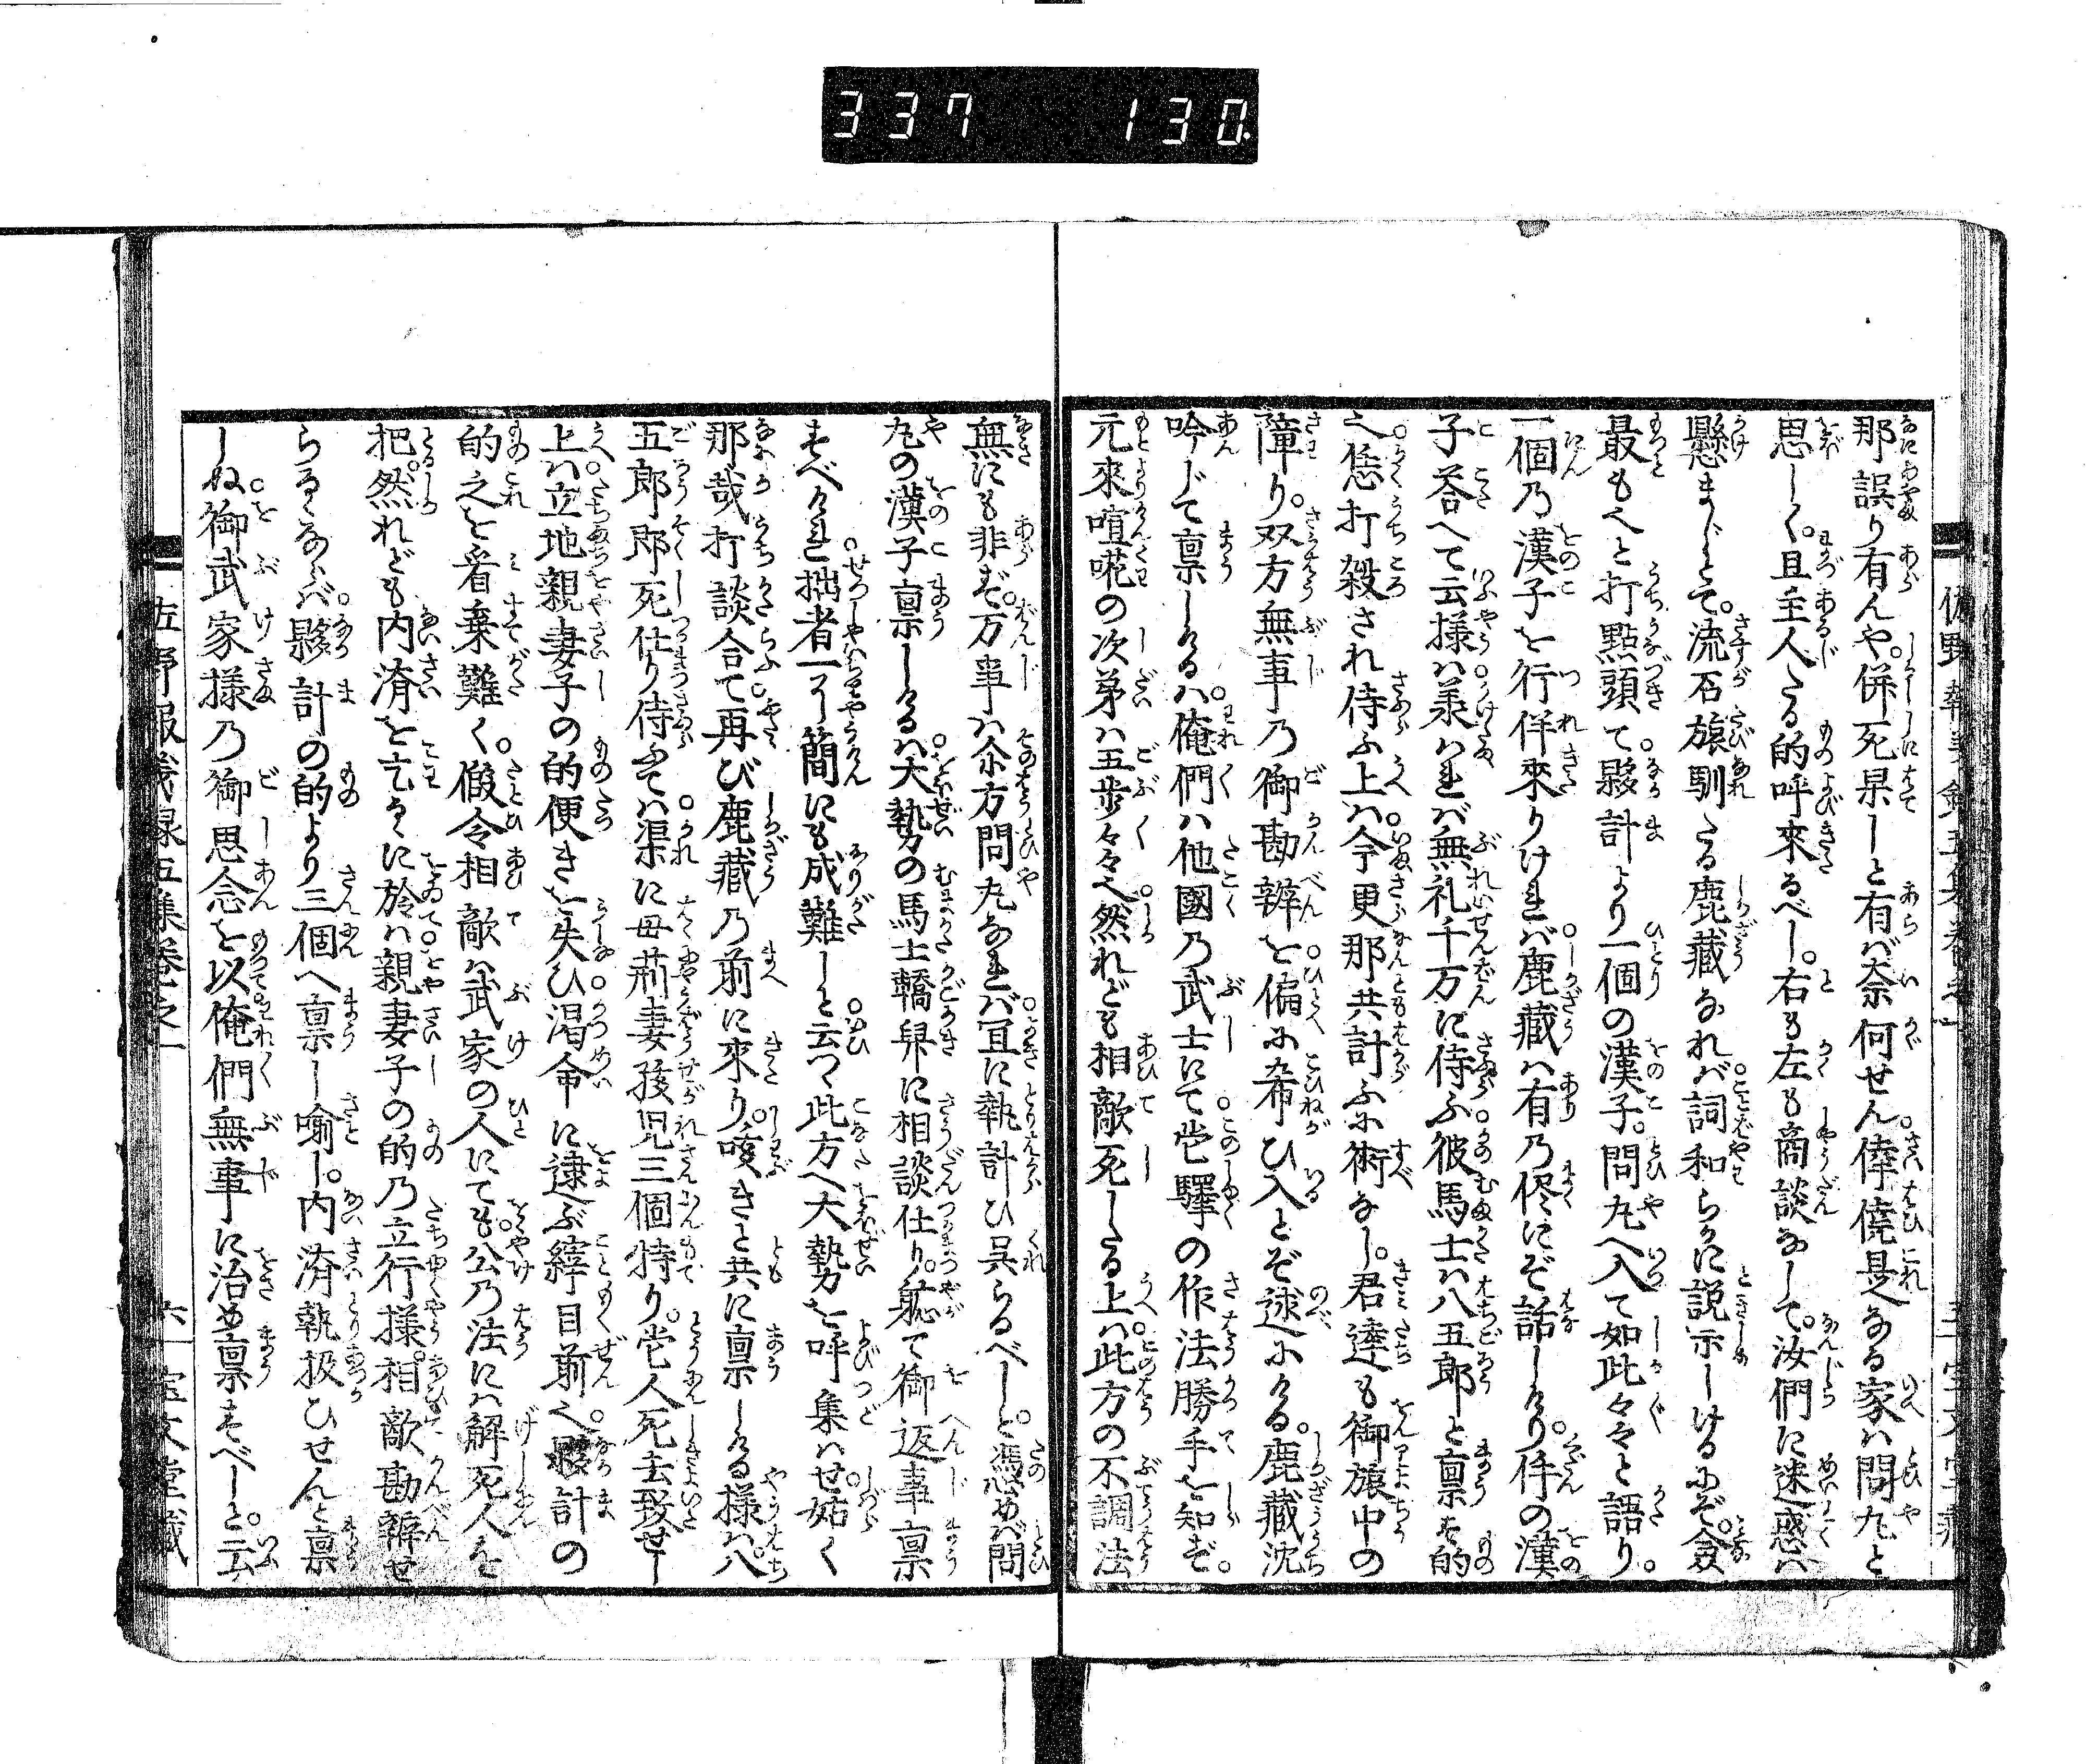 337 130
那誤り有んや。併死果しと有ば奈何せん倖僥是なる家ハ問丸と
思しく。且主人たる的呼來るべし。右も左も商談なして。汝們に迷惑ハ
懸まじとて。流石旅馴たる鹿藏なれバ詞和らかに説示しけるにぞ。僉
最もへと打點頭て。夥計より一個の漢子。問丸へ入て如此々々と語り。
一個乃漢子を行佯來りけれバ。鹿藏ハ有乃侭にぞ話しけり。件の漢
子答へて云様ハ。羕ハれバ無礼千万に侍ふ彼馬士ハ八五郎と禀す的
之。恁打殺され侍ふ上ハ。今更那共計ふ术術なし。君達も御旅中の
障り。双方無事乃御勘辨を。偏に希ひ入とぞ述にける。鹿藏沈
吟じて禀しけるハ。俺們ハ他國乃武士にて。此驛の作法勝手を知ず。
元來喧𠵅の次第ハ五歩々々之。然れども相敵死したる上ハ。此方の不調法
無にも非ず。万事ハ尒方問丸なれバ。冝に執計ひ呉らるべしと。憑めバ問
丸の漢子禀しけるハ。大勢の馬士轎舁に相談仕り。軈て御返事禀
すべけれ。拙者一了簡にも成難しと。云つゝ此方へ大勢を呼集ハせ。姑く
那哉打談合て。再び鹿藏乃前に來り。咳きと共に禀しける様ハ。八
五郎郎死仕り侍ふてハ。渠に母荊妻孩児三個持り。当人死去致せし
上ハ。立地親妻子の的便きを失ひ。渇命に逮ぶ縡目前之。夥計の
的之を看棄難く。假令相敵ハ武家の人にても。公乃法にハ解死人を
把。然れども内濟を乞るゝに於ハ。親妻子の的乃立行様。相敵勘辨せ
らるゝならバ。夥計の的より三個へ禀し喻し。内濟執扱ひせんと禀
しぬ。御武家様乃御思念を以。俺們無事に治め禀すべしと。云
佐野報義録五集卷之一 六 宝文堂藏